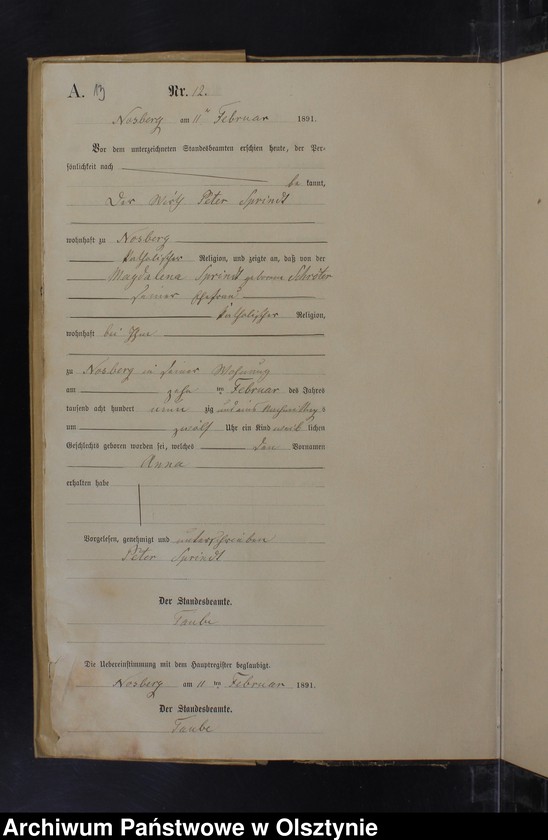 A. 13 Nr. 12.
Nosberg am 11 ten Februar 1891.
Vor dem unterzeichneten Standesbeamten erschien heute, der Per-
sönlichkeit nach
be kannt,
Der Wirth Peter Sprindt
wohnhaft zu Nosberg
katholischer Religion, und zeigte an, daß von der
Magdalena Sprindt geborene Schröter
seiner Ehefrau
katholischer Religion,
wohnhaft bei Ihm
zu Nosberg in seiner Wohnung
am zehn ten Februar des Jahres
tausend acht hundert neun zig und eins Nachmittag s
um zwölf Uhr ein Kind weib lichen
Geschlechts geboren worden sei, welches den Vornamen
Anna
erhalten habe
Vorgelesen, genehmigt und unterschrieben
Peter Sprindt
Der Standesbeamte.
Taube
Die Uebereinstimmung mit dem Hauptregister beglaubigt.
Nosberg am 11 ten Februar 1891.
Der Standesbeamte.
Taube
Archiwum Państwowe w Olsztynie